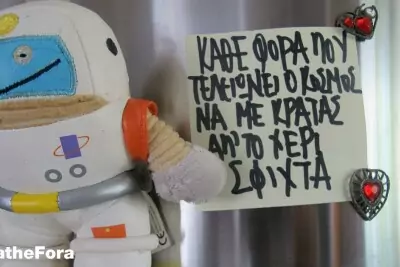 ΚΑΘΕ ΦΟΡΑ ΠΟΥ
ΤΕΛΕΙΩΝΕΙ Ο ΚΟΣΜΟΣ
ΝΑ ΜΕ ΚΡΑΤΑΣ
ΑΠ' ΤΟ ΧΕΡΙ
ΣΦΙΧΤΑ
atheFora